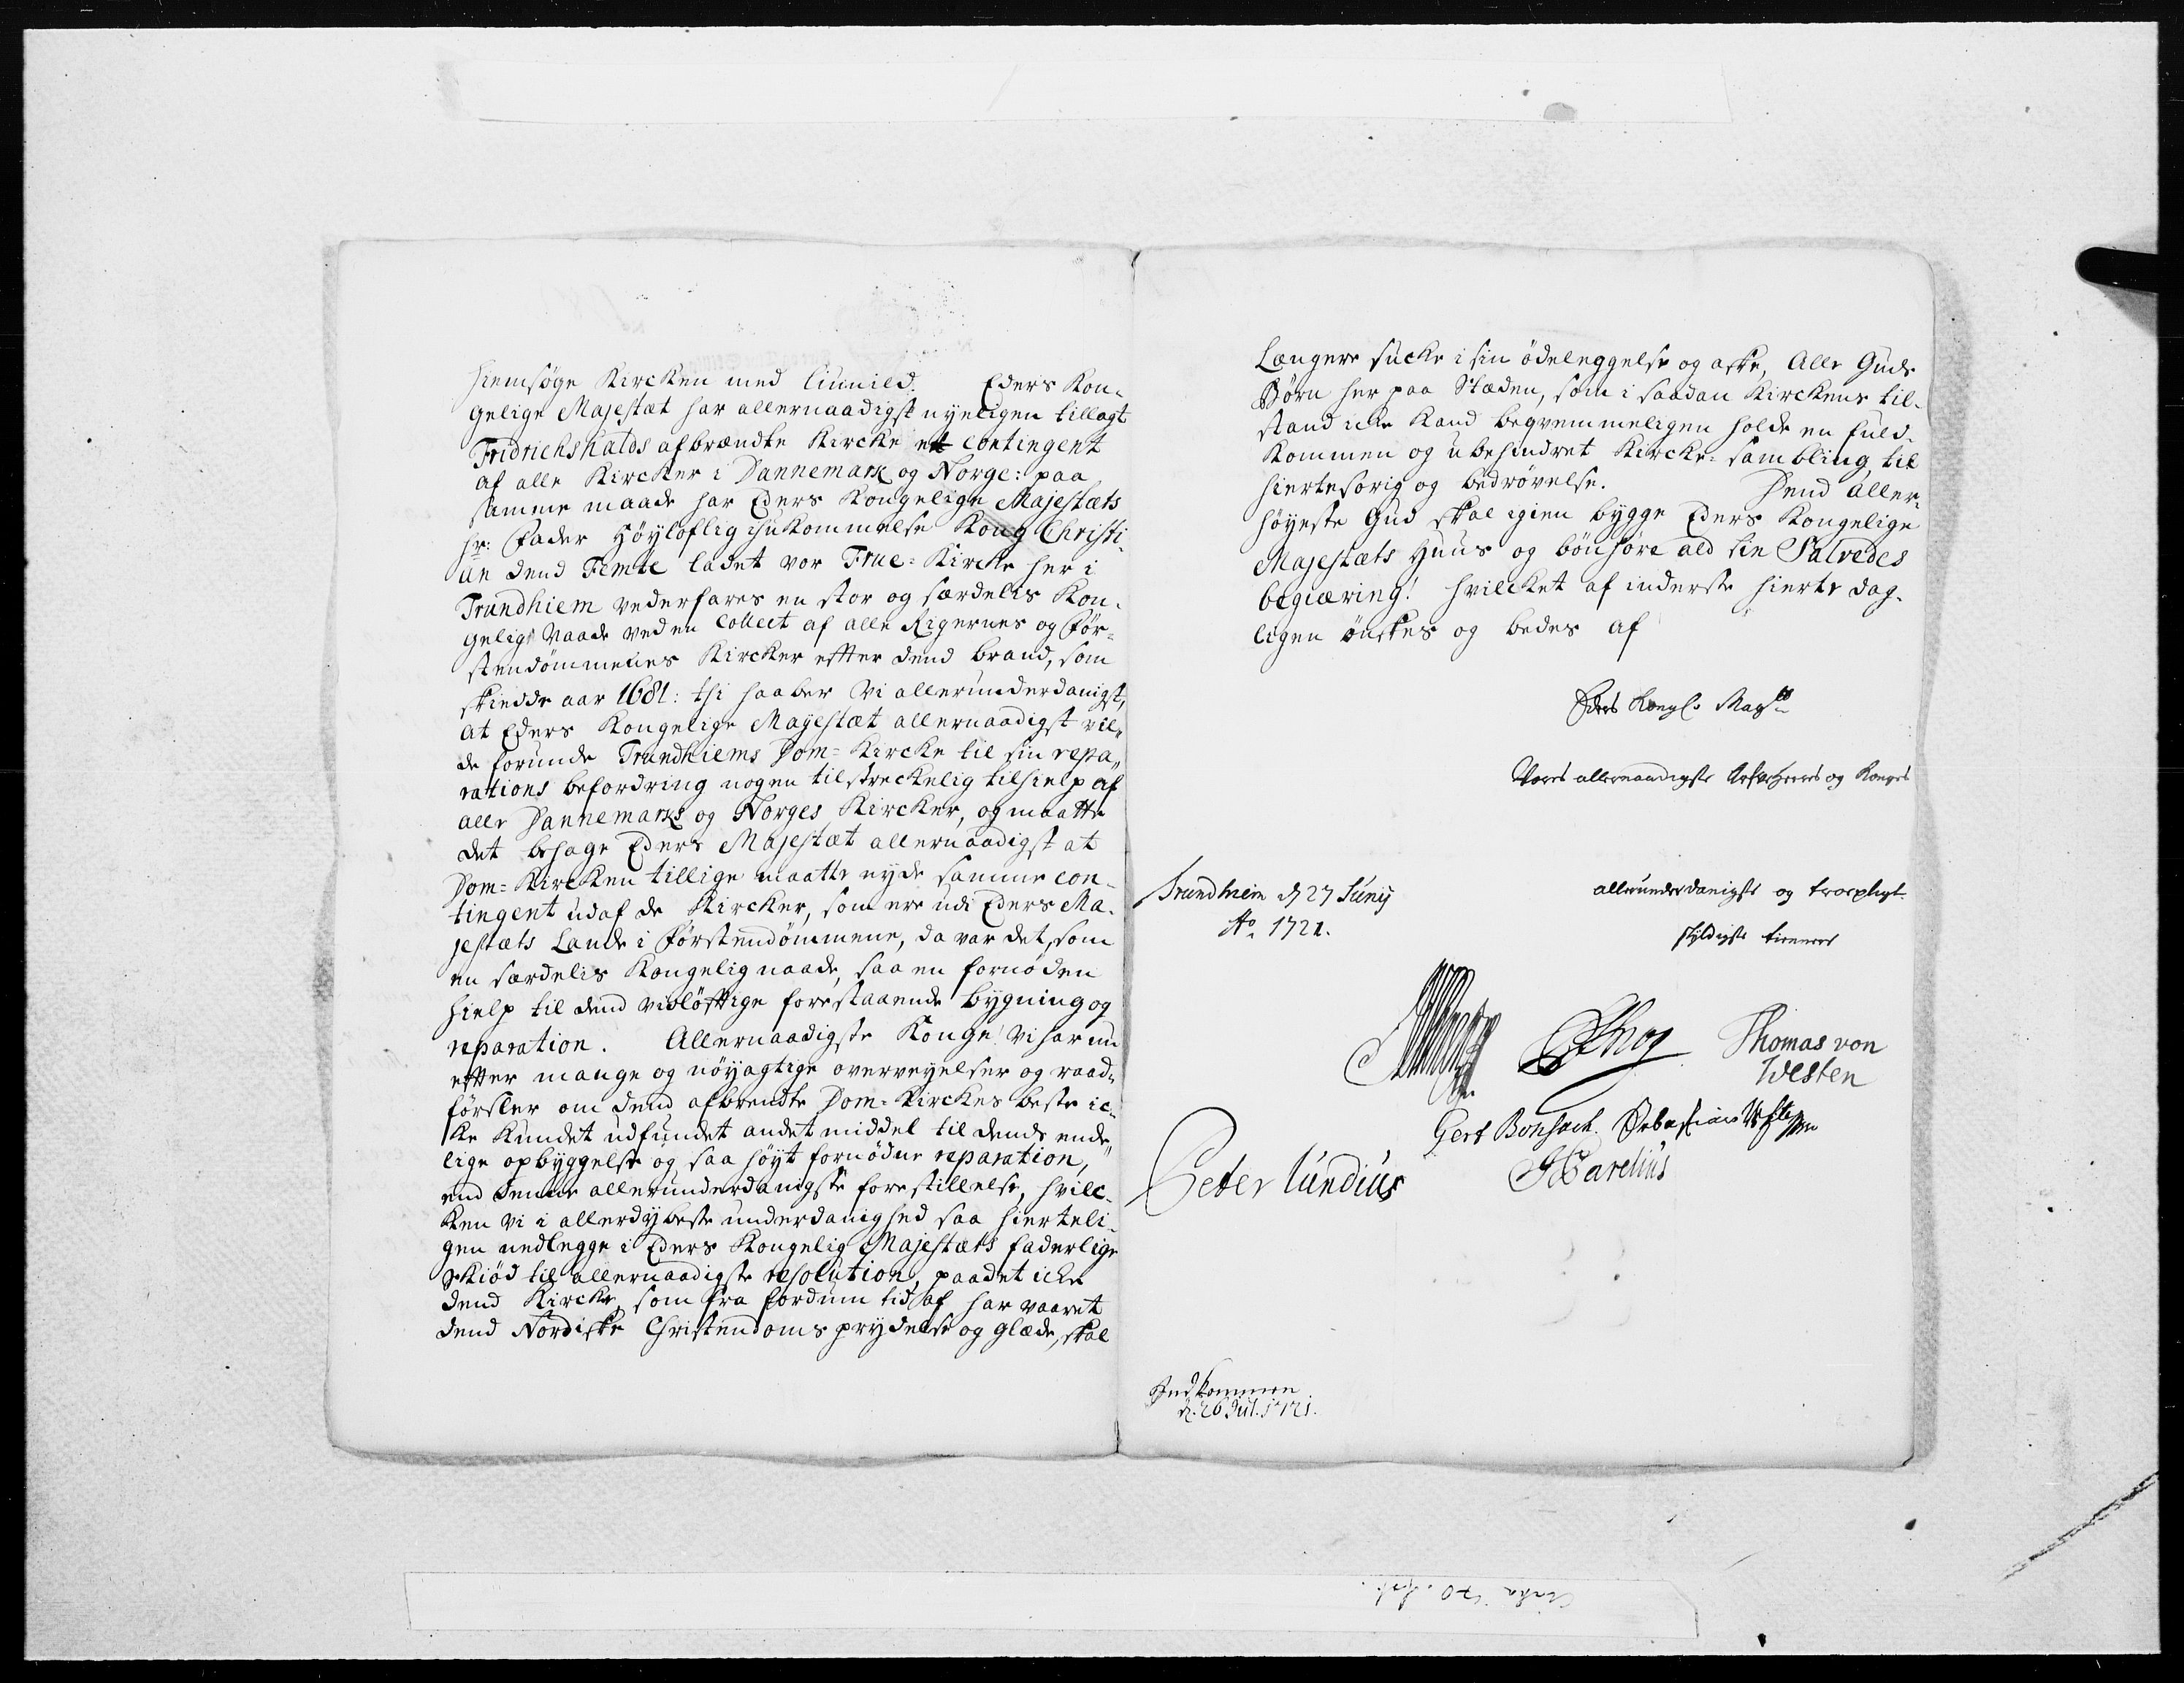 hiemsøge Kircken med liunild. Eders Kon-
gelige Majestæt har allernaadigst nyeligen tillagt
Fridrichshalds afbrændte Kircke et contingent
af alle Kircker i Dannemark og Norge: paa
samme maade har Eders Kongelige Majestæts
hr: Fader Høyloflig ihukommelse Kong Christi-
an dend Femte ladet vor Frue-Kircke her i
Trundhiem vederfares en stor og særdelis Kon-
gelig Naade ved en Collect af alle Rigernes og För-
stendömmenes Kircker effter dend brand, som
skiedde aar 1681: thi haaber Vi allerunderdanigst,
at Eders Kongelige Mayestæt allernaadigst vil-
de forunde Trundhiems Dom-Kircke til sin repa-
rations befordring nogen tilstreckelig tilhielp af
alle Dannemarks og Norges Kircker, og maatte
det behage Eders Majestæt allernaadigst at
Dom-Kircken tillige maatte nyde samme con-
tingent udaf de Kircker, som ere udi Eders Ma-
jestæts Lande i Förstendömmene, da var det, som
en særdelis Kongelig naade, saa en fornöden
hielp til dend vidlöfftige forestaaende bygning og
reparation. Allernaadigste Konge! Vi har nu
effter mange og nöyagtige overveyelser og raad-
förster om dend afbrendte Dom-Kirckes beste ic-
ke kundet udfundet andet middel til dends ende-
lige opbyggelse og saa höyt fornödne reparation,
end denne allerunderdanigste forestillelse, hvilc-
ken vi i allerdybeste underdanighed saa hierteli-
gen nedlegge i Eders Kongelig Majestæts faderlige
Skiöd til allernaadigste resolution, paadet icke
dend Kircke, som fra fordum tid af har vaaret
dend Nordiske Christendoms prydelse og glæde, skal
Længere sucke i sin ödeleggelse og aske, Alle Guds
Børn her paa Stæden, som i saadan Kirckens til-
stand icke kand beqvemmeligen holde en fuld-
kommen og ubehindret Kircke-sambling, til
hiertesorig og bedrøvelse. Dend Aller-
höyeste Gud skal igien bygge Eders Kongelige
Majestæts Huus og bönhöre ald sin Salvedes
begiæring! hvilcket af inderste hierte dag-
ligen önskes og bedes af
Eders Kongl: Mayts
Vores allernaadigste Arfveherres og Konges
Trundhiem d 27 Junij
Ao 1721.
allerunderdanigste og troepligt-
skyldigste tienere
Thomas von
Westen
Gert Bonsach.
Peter Lundius
Indkommen
d. 26 Jul. 1721.